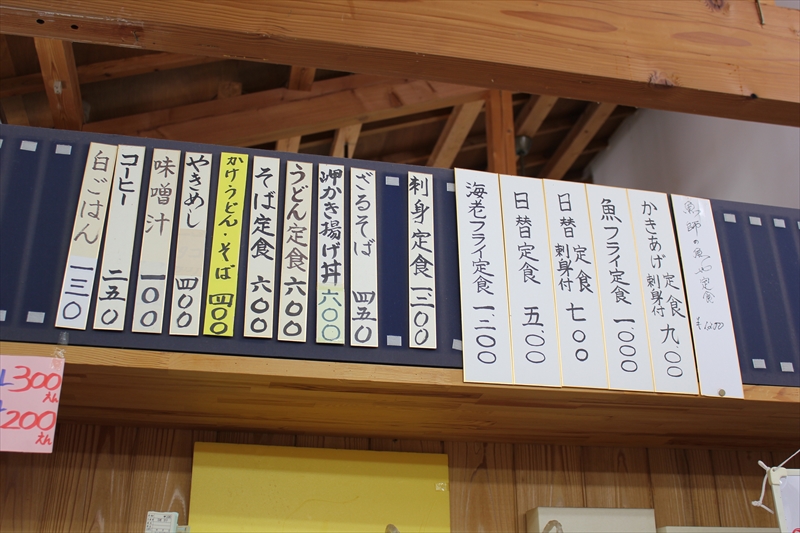 定食
かきあげ定食刺身付 九〇〇
魚フライ定食 一、〇〇〇
日替定食刺身付 七〇〇
日替定食 五〇〇
海老フライ定食 一、二〇〇
刺身定食 一二〇〇
ざるそば 四五〇
岬かき揚げ丼 六〇〇
うどん定食 六〇〇
そば定食 六〇〇
かけうどん・そば 四〇〇
やきめし 四〇〇
味噌汁 一〇〇
コーヒー 二五〇
白ごはん 一三〇
300えん
200えん